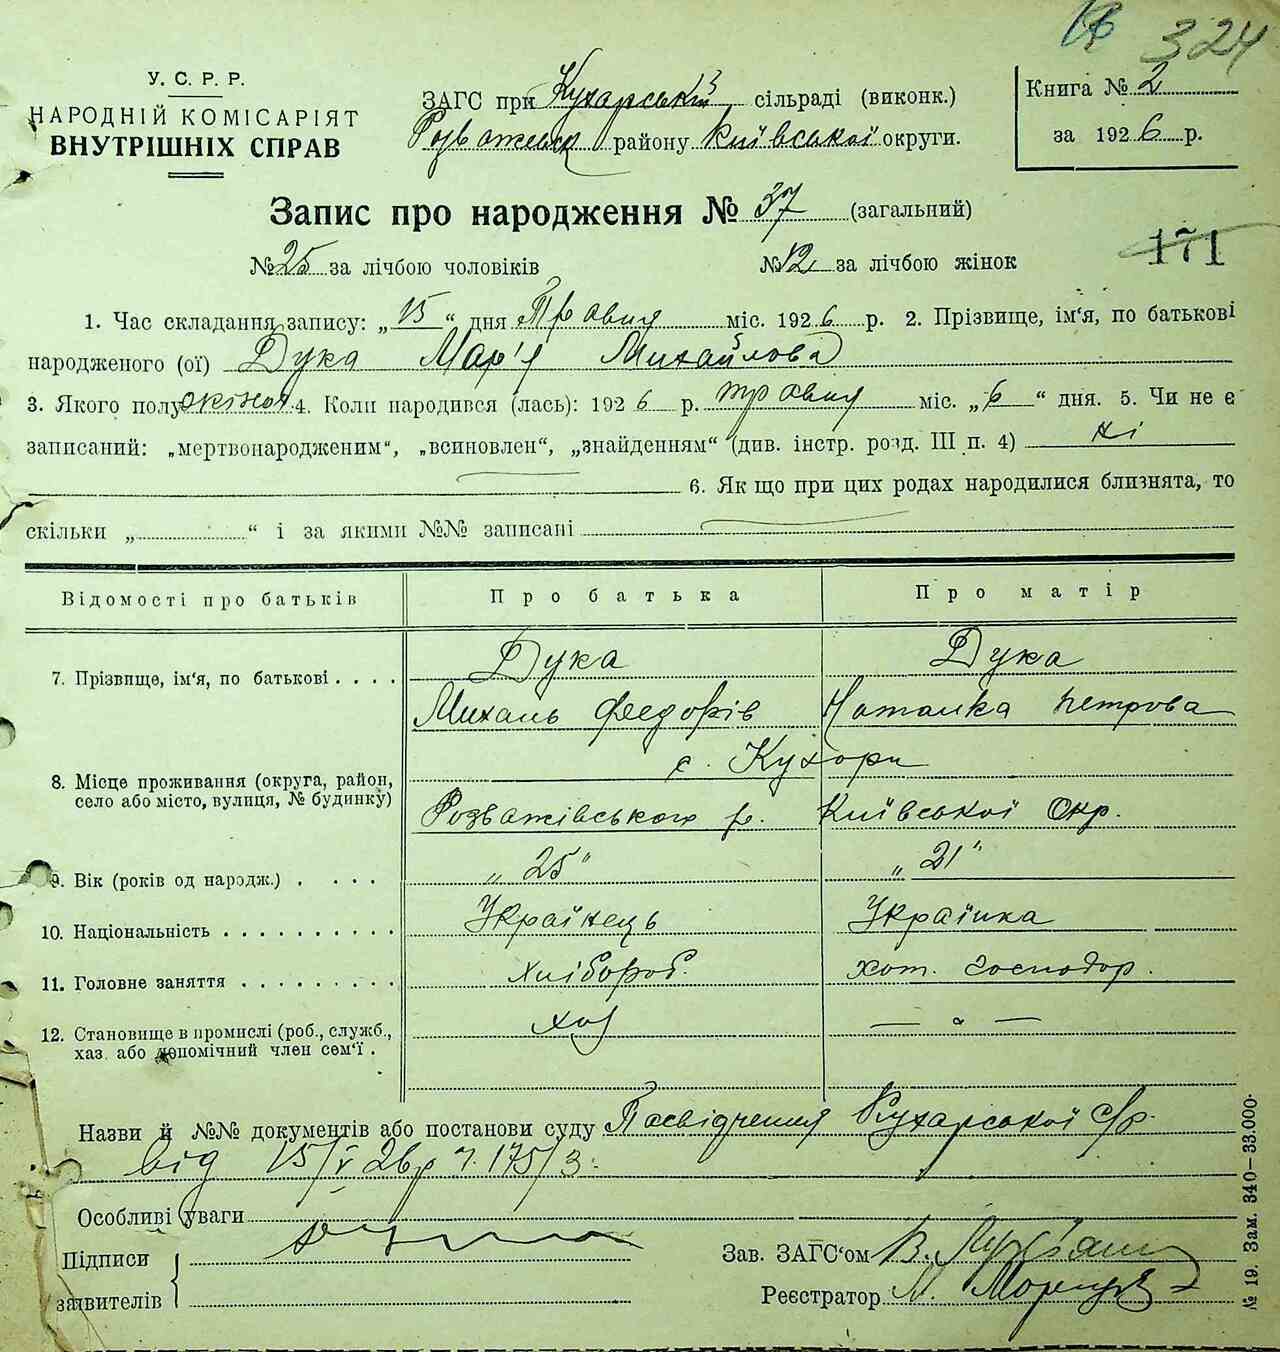 324
У. С. Р. Р.
НАРОДНІЙ КОМІСАРІЯТ
ВНУТРІШНІХ СПРАВ
ЗАГС при Кухарській сільраді (виконк.)
Розважевск району Київської округи.
Книга № 2
за 1926 р.
Запис про народження № 37 (загальний)
№ 25 за лічбою чоловіків № 12 за лічбою жінок
171
1. Час складання запису: „15“ дня Травня міс. 1926 р. 2. Прізвище, ім'я, по батькові
народженого (ої) Дука Мар'я Михайлова
3. Якого полу жіноч. 4. Коли народився (лась): 1926 р. травня міс. „6“ дня. 5. Чи не є
записаний: „мертвонародженим“, „всиновлен“, „знайденням“ (див. інстр. розд. III п. 4) ні
6. Як що при цих родах народилися близнята, то
скільки „ “ і за якими №№ записані
Відомості про батьків Про батька Про матір
7. Прізвище, ім'я, по батькові . . . . Дука Дука
Михаль Федорів Наталка Петрова
8. Місце проживання (округа, район, с. Кухари
село або місто, вулиця, № будинку) Розважівського р. Київської Окр.
9. Вік (років од народж.) . . . . „25“ „21“
10. Національність . . . . . . . . . . Українець Українка
11. Головне заняття . . . . . . . . . Хлібороб. хат. господар.
12. Становище в промислі (роб., служб., Хаз — „ —
хаз. або допомічний член сем'ї .
Назви й №№ документів або постанови суду Посвідчення Кухарської с/р.
від 15/V 26р ч. 175/3.
Особливі уваги
Підписи
заявителів
Зав. ЗАГС'ом В.
Реєстратор М.
№ 19. Зам. 340—33.000.